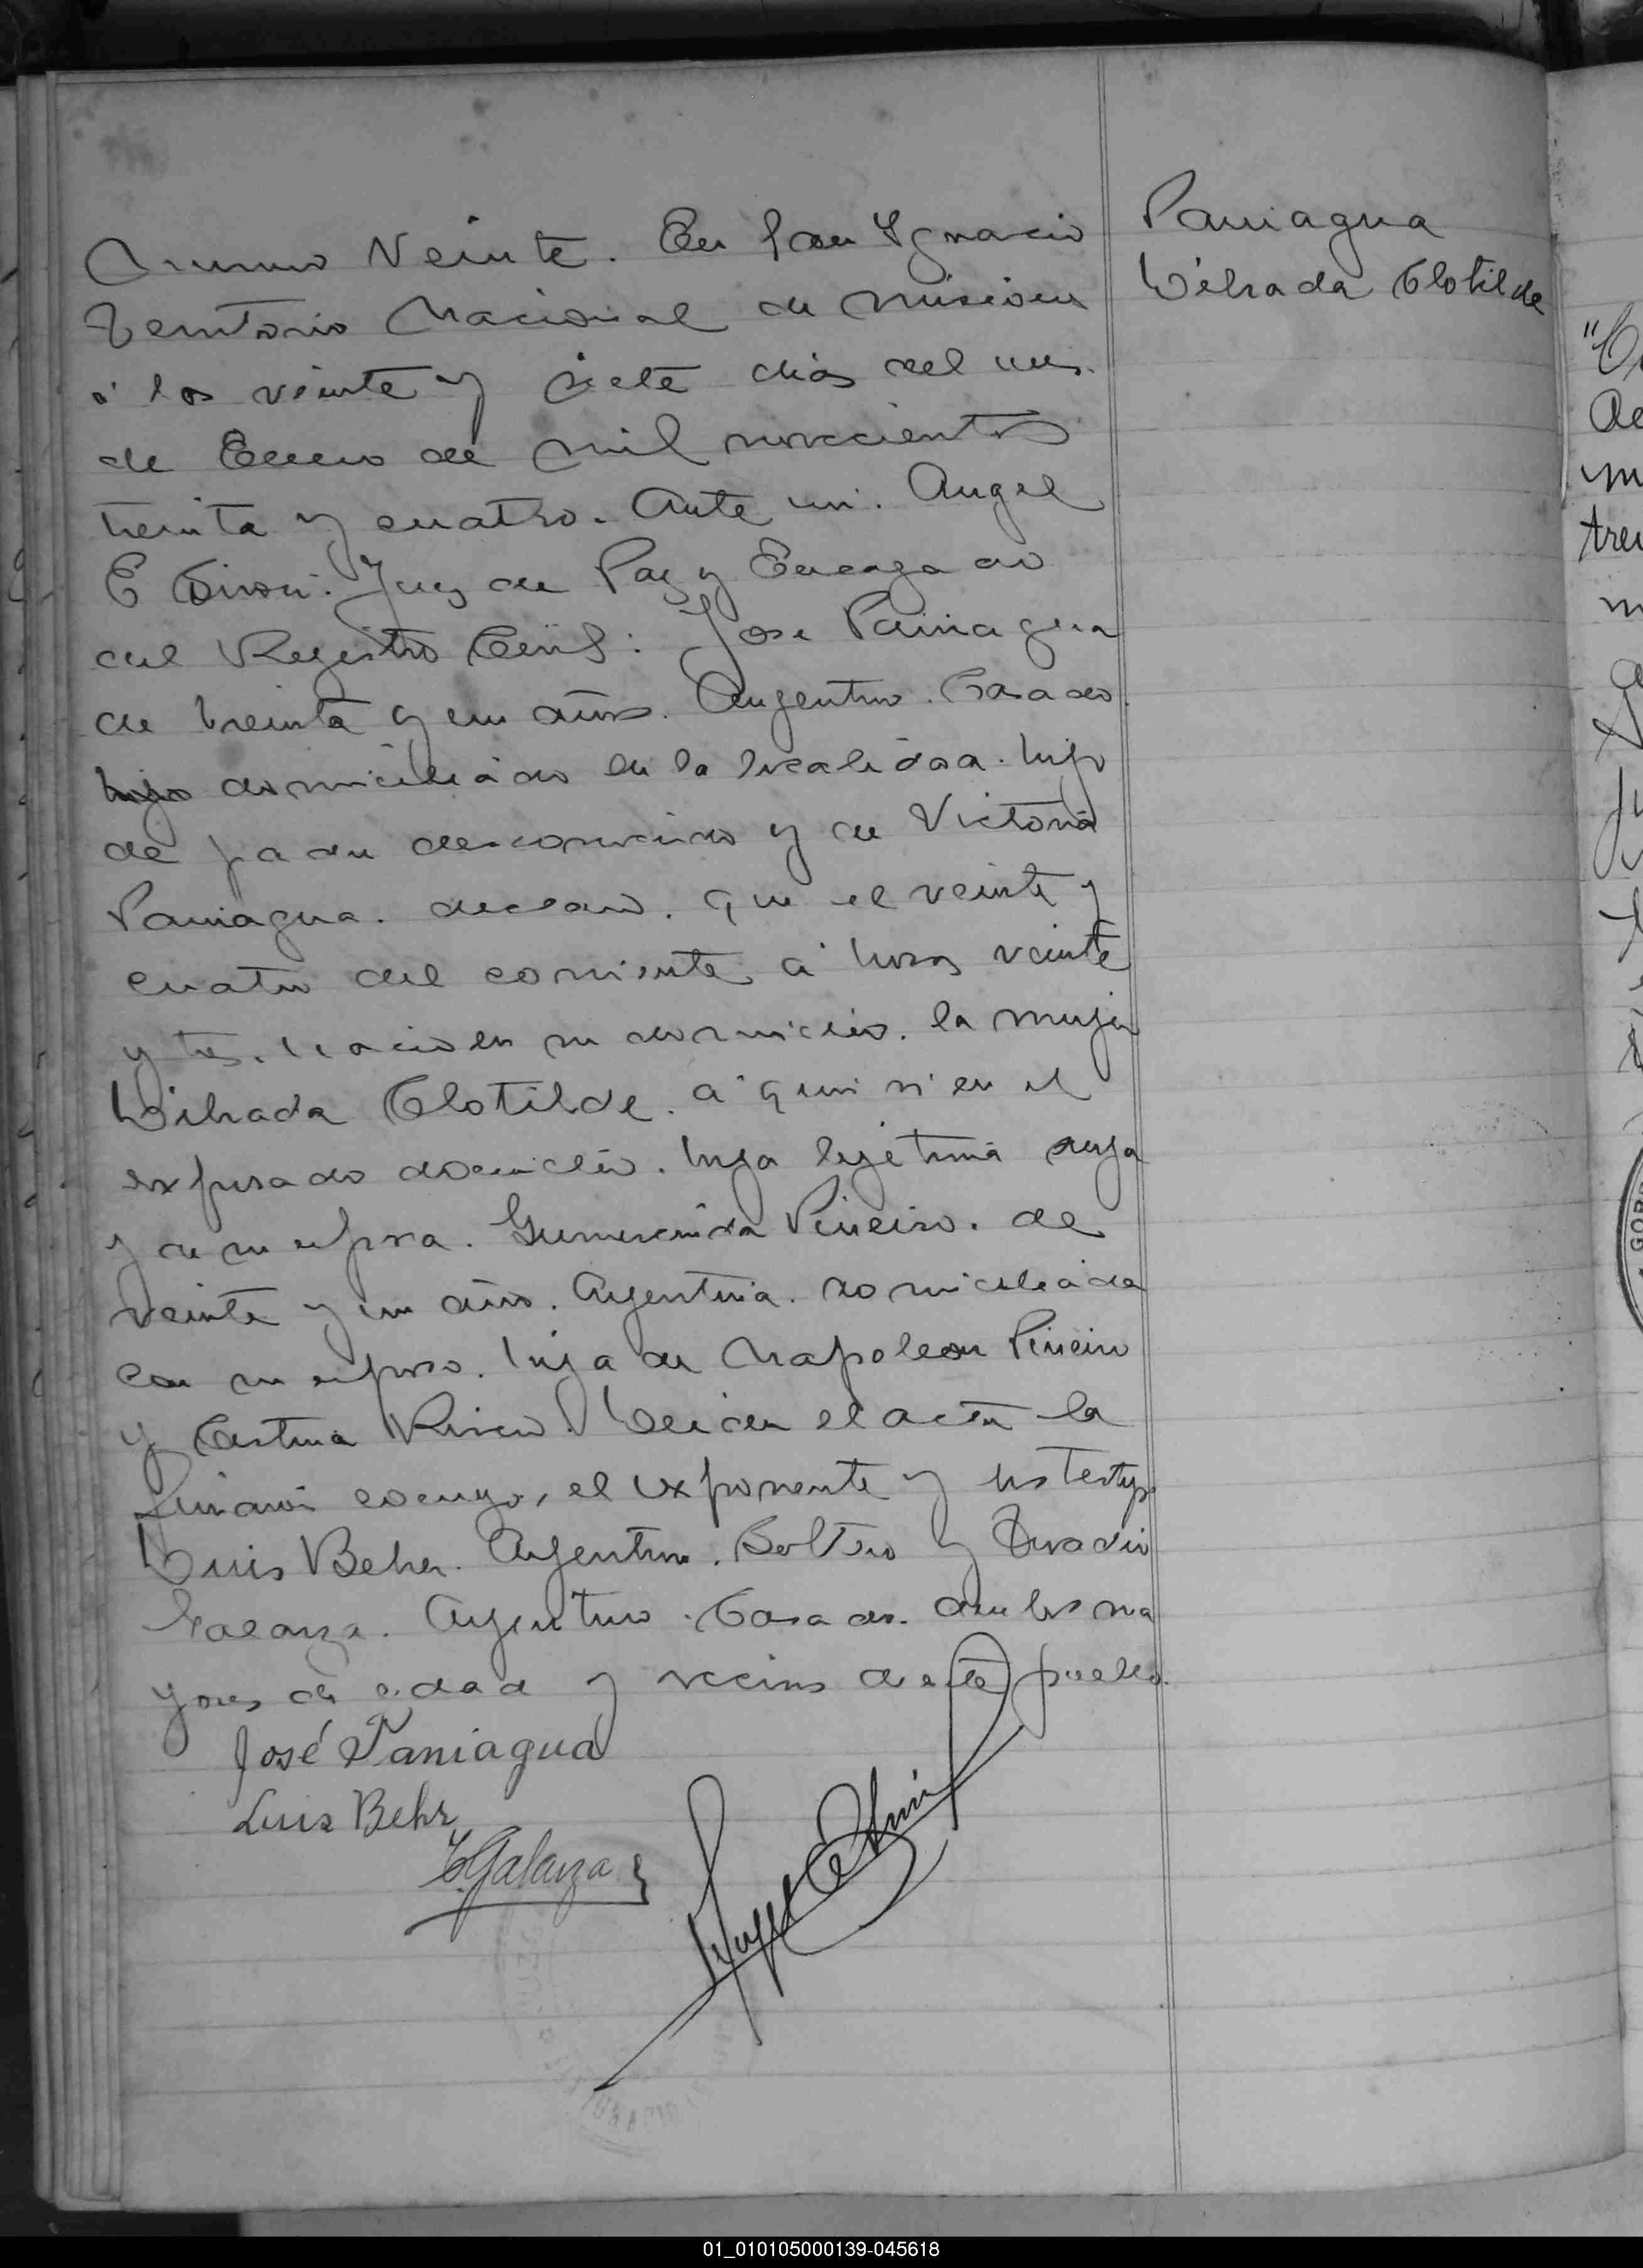 Numero Veinte. En San Ignacio
Territorio Nacional de Misiones
a los veinte y siete dias del mes
de Enero de mil novecientos
treinta y cuatro. Ante mi. Angel
E Juez de Paz y Encargado
del Registro Civil: Jose Paniagua
de treinta y un años. Argentino. Casado.
hijo domiciliado en la localidad. hijo
de padre desconocido y de Victoria
Paniagua. declaró. que el veinte y
cuatro del corriente a horas veinte
y tres. nacio en su domicilio. la mujer
Librada Clotilde. a quien vi en el
expresado domicilio. hija legitima suya
y de su esposa. Gumercinda Piñeiro. de
veinte y un años. Argentina. domiciliada
con su esposo. hija de Napoleon Piñeiro
y Leida el acta la
firmaron conmigo, el exponente y los testigos
Luis Beher. Argentino. Soltero y
Galarza. Argentino. Casado. ambos ma
yores de edad y vecinos de este pueblo.
José Paniagua
Luis Behr
Galarza
Paniagua
Librada Clotilde
01_010105000139-045618